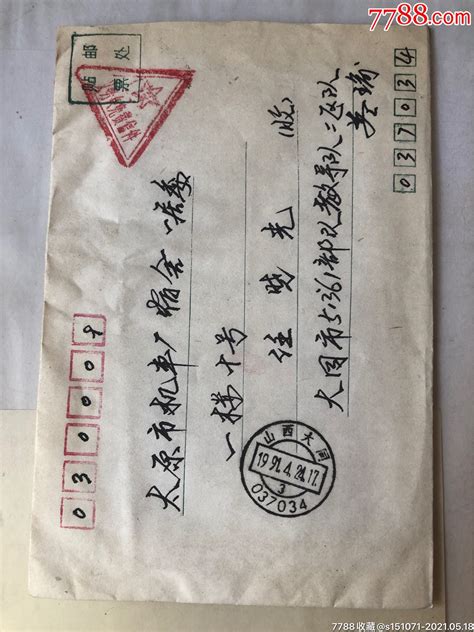 7788.com
贴邮
票处
030009
太原市机车厂宿舍一居委
一楼十号
任晓光 收
大同市51361部队教导队二区队
037034
山西大同
1991.4.24.17
3
037034
7788收藏@s151071-2021.05.18